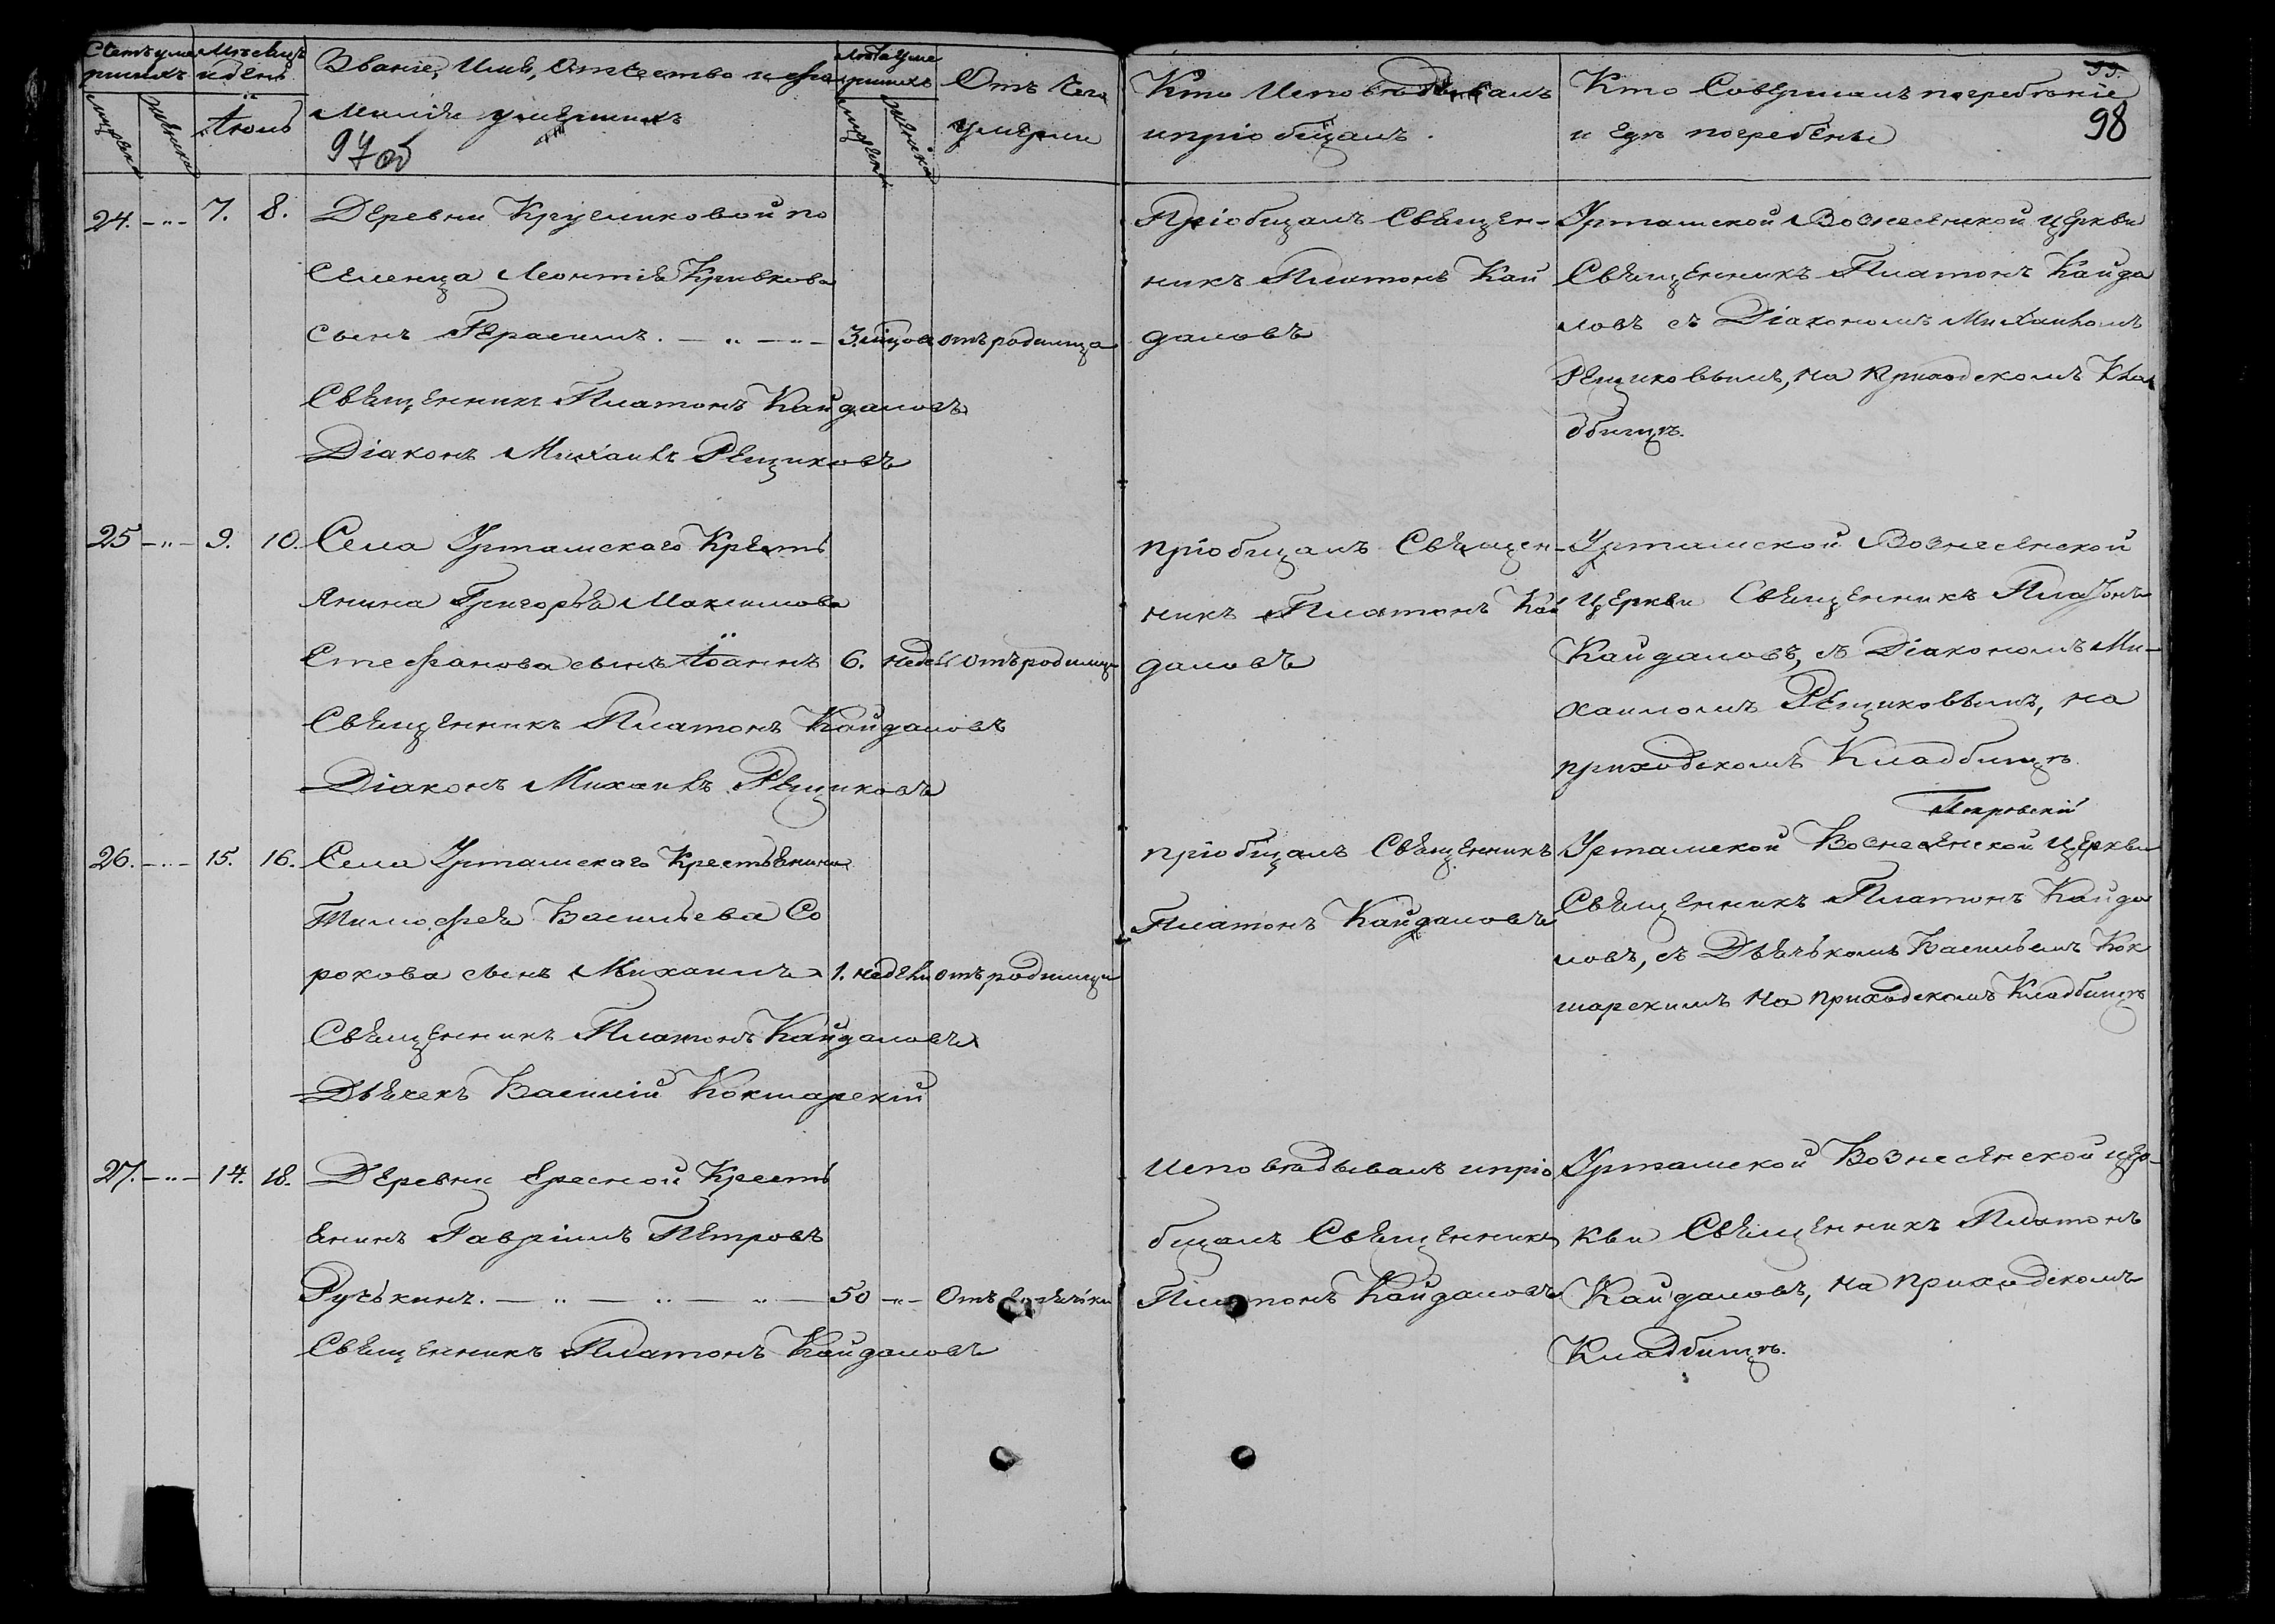 Счетъ уме Мѣсяцъ
ршихъ и день
мужеска
женска
Іюль
Званіе, Имя, Отчество и фа
милія умершихъ
97 об
Лѣта уме
ршихъ
мужеска
женска
Отъ чего
умерли
Кто Исповѣдывалъ
и пріобщалъ.
Кто Совершалъ погребеніе
и гдѣ погребены
99.
98
24. - " - 7. 8. Деревни Кругликовой по
селенца Леонтія Кривкова
сынъ Герасимъ. — " — " — 3. мѣсяцов отъ родимца
Священникъ Платонъ Кайдаловъ
Діаконъ Михаилъ Рещиковъ
Пріобщалъ Священ-
никъ Платонъ Кай
даловъ
Уртамской Вознесенской церкви
Священникъ Платонъ Кайда
ловъ съ Діакономъ Михаиломъ
Рещиковымъ, на приходскомъ Кла
дбищѣ.
25 - " - 9. 10. Села Уртамскаго Кресть
янина Григорья Максимова
Стефанова сынъ Іоаннъ 6. недель отъ родимца
Священникъ Платонъ Кайдаловъ
Діаконъ Михаилъ Рещиковъ
пріобщалъ Священ-
никъ Платонъ Кай
даловъ
Уртамской Вознесенской
церкви Священникъ Платонъ
Кайдаловъ, съ Діакономъ Ми-
хаиломъ Рещиковымъ, на
приходскомъ Кладбищѣ.
Покровскій
26. - " - 15. 16. Села Уртамскаго Крестьянина
Тимофея Васильева Со
рокова сынъ Михаилъ 1. недѣли отъ родимца
Священникъ Платонъ Кайдаловъ
Дьячекъ Василій Кокшарскій
пріобщалъ Священникъ
Платонъ Кайдаловъ
Уртамской Вознесенской Церкви
Священникъ Платонъ Кайда
ловъ, съ Дьячькомъ Васильемъ Кок
шарскимъ на приходскомъ Кладбищѣ
27. - " - 14. 18. Деревни Ересной Кресть
янинъ Гавріилъ Петровъ
Ручькинъ. — " — " — " — 50 - " - Отъ
Священникъ Платонъ Кайдаловъ
Исповѣдывалъ и пріо
бщалъ Священникъ
Платонъ Кайдаловъ
Уртамской Вознесенской цер-
кви Священникъ Платонъ
Кайдаловъ, на приходскомъ
Кладбищѣ.